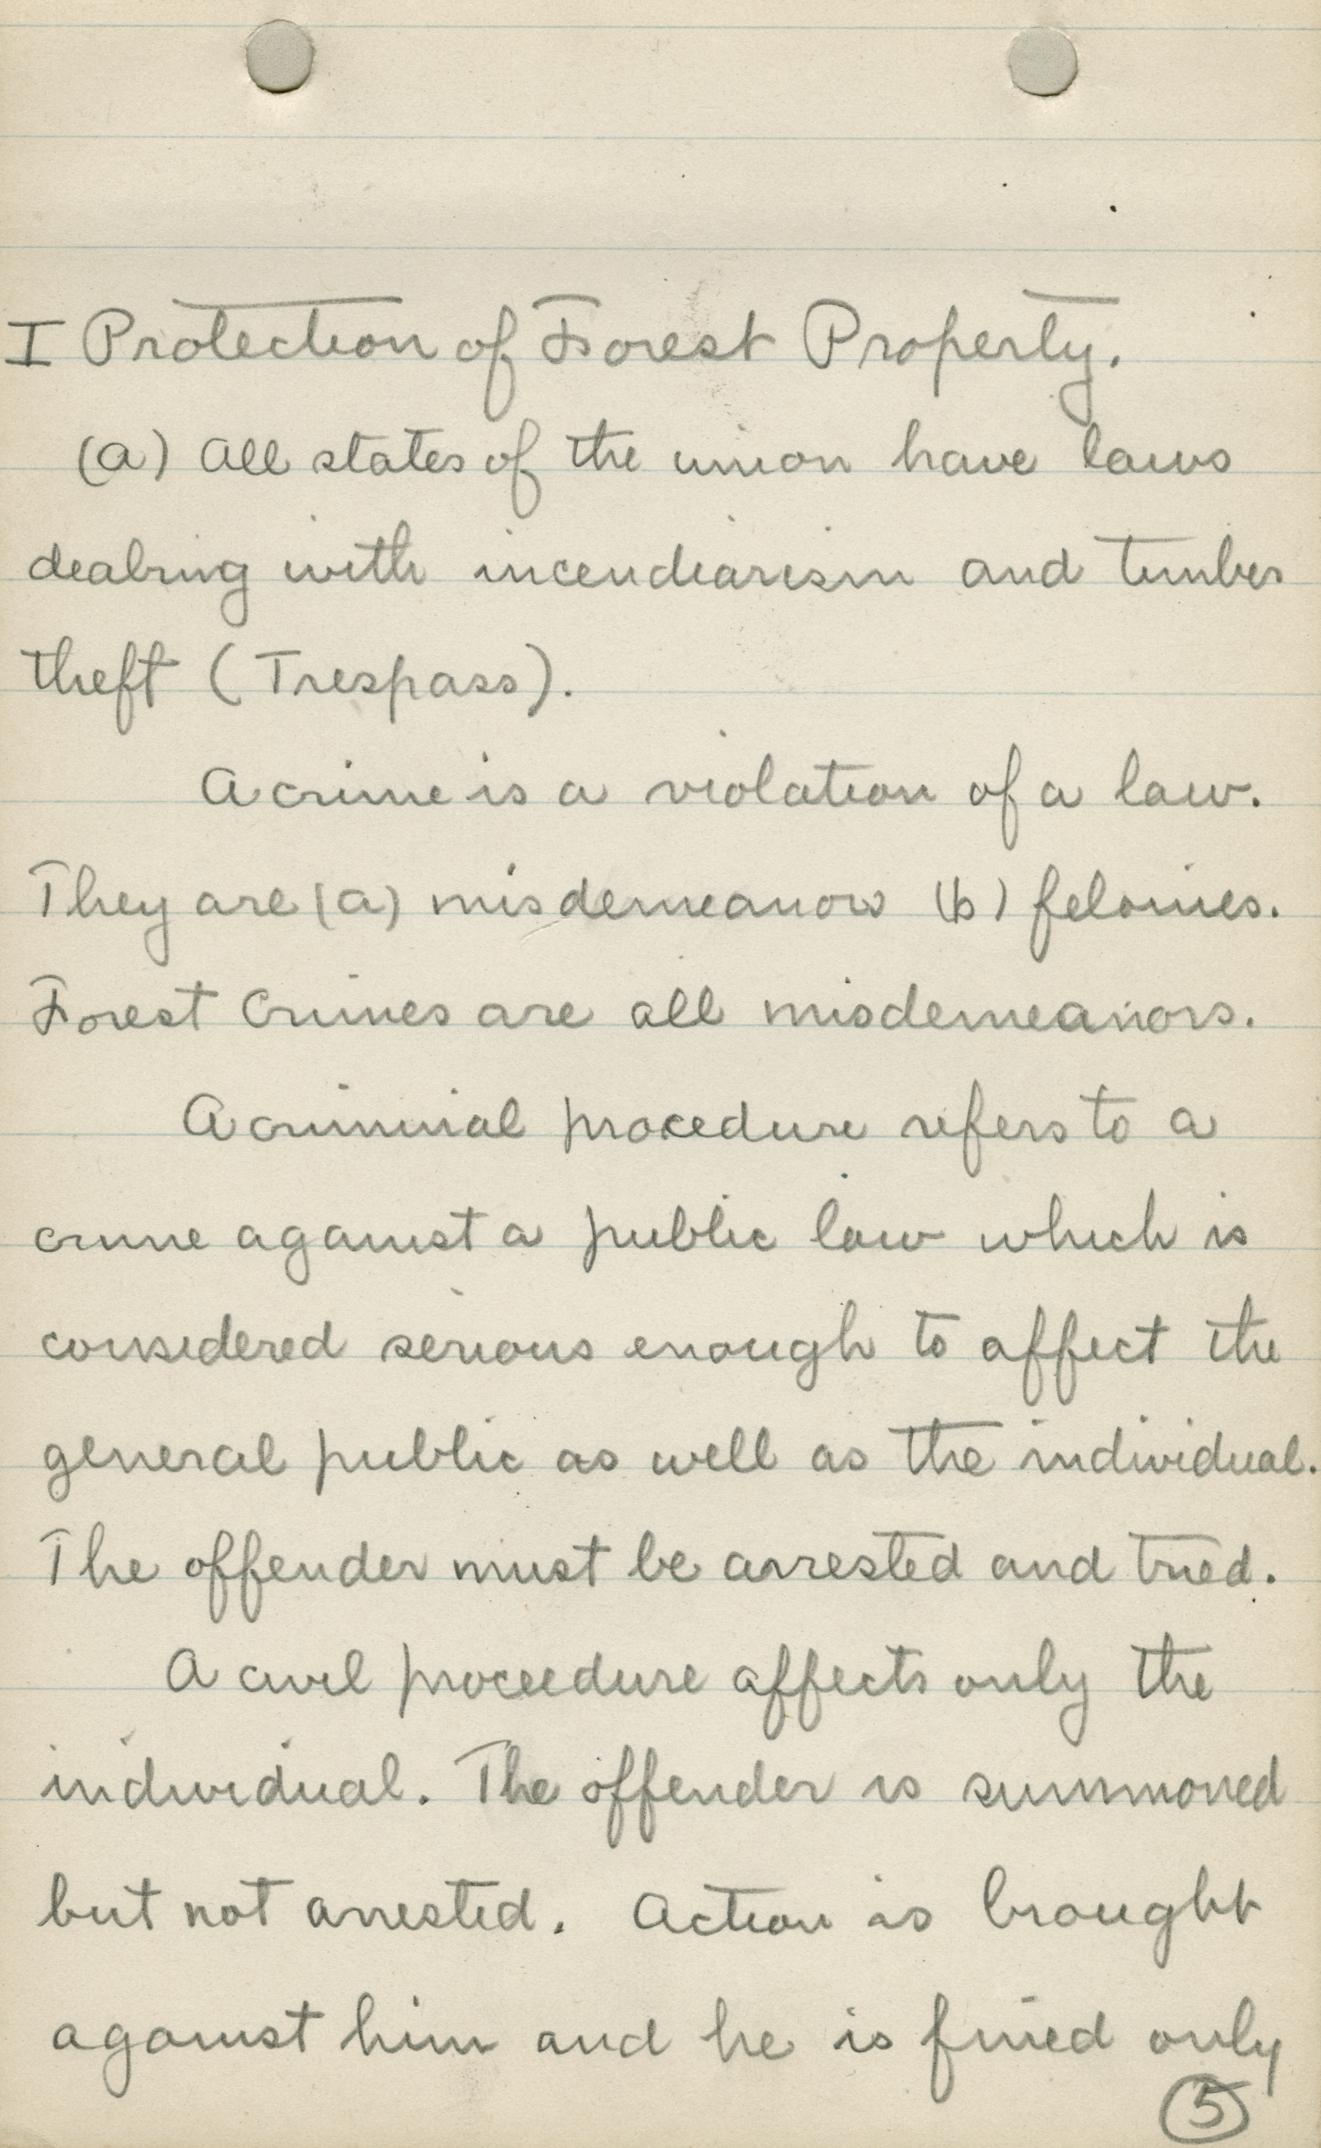 I Protection of Forest Property.
(a) All states of the union have laws
dealing with incendiarism and timber
theft (Trespass).
A crime is a violation of a law.
They are (a) misdemeanors (b) felonies.
Forest Crimes are all misdemeanors.
A criminal procedure refers to a
crime against a public law which is
considered serious enough to affect the
general public as well as the individual.
The offender must be arrested and tried.
A civil proceedure affects only the
individual. The offender is summoned
but not arrested. Action is brought
against him and he is fined only
5